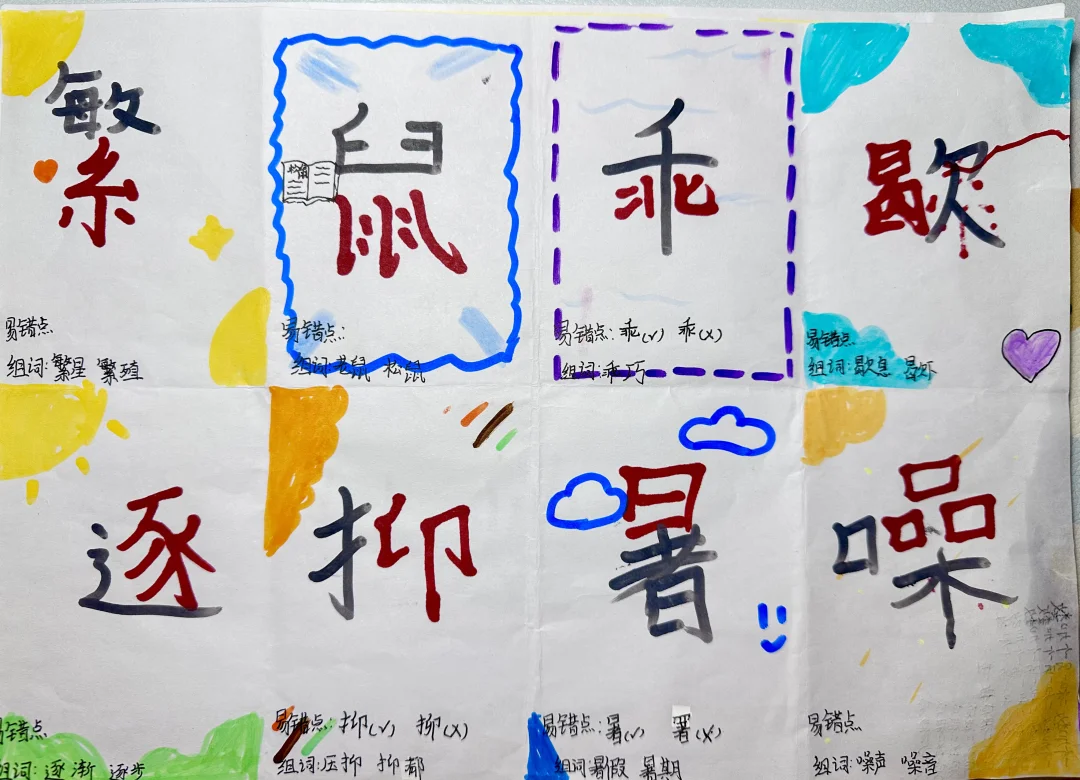 繁
易错点
组词:繁星 繁殖
鼠
松鼠
易错点:
组词:老鼠 松鼠
乖
易错点:乖(√) 乖(×)
组词:乖巧
歇
易错点
组词:歇息
逐
易错点
组词:逐渐 逐步
抑
易错点:抑(√) 抑(×)
组词:压抑 抑郁
暑
易错点:暑(√) 署(×)
组词暑假 暑期
噪
易错点
组词:噪声 噪音